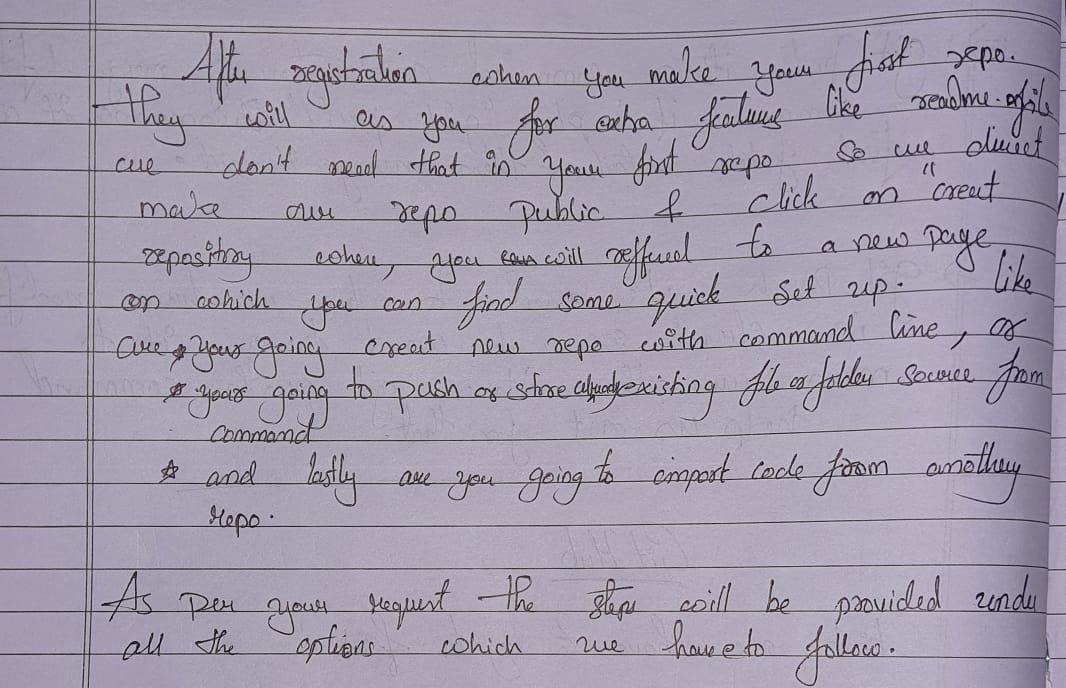 After registration when you make your first repo.
they will as you for extra features like readme.file
we don't need that in your first repo so we direct
make our repo public & click on "creat
repository when, you will reffered to a new page
on which you can find some quick set up. like
are * your going creat new repo with command line, or
* your going to push or store already existing file or folder source from
command
* and lastly are you going to import code from another
repo.
As per your request the steps will be provided under
all the options which we have to follow.